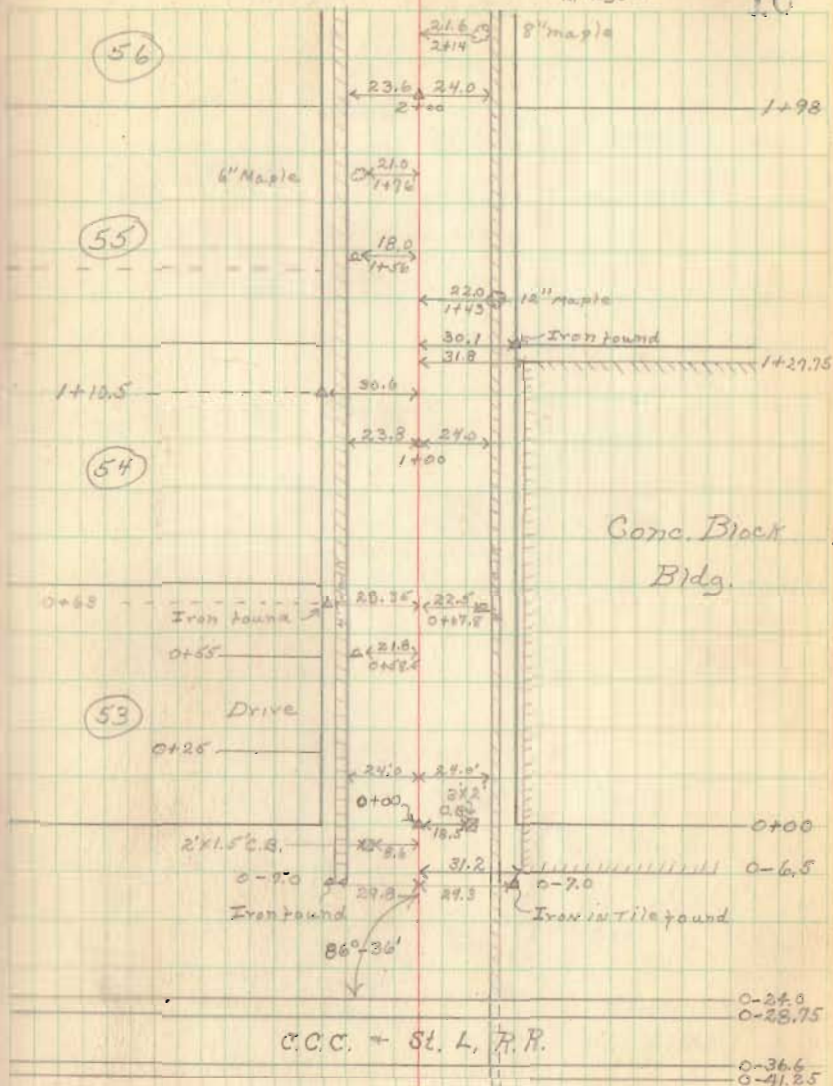 20
21.6 8" maple
2+14
56
23.6 24.0
2+00 1+98
6" Maple 21.0
1+76
55
18.0
1+56
22.0 12" maple
1+43
30.1 Iron found
31.8
1+27.75
1+10.5 30.6
23.8 24.0
1+00
54
Conc. Block
Bldg.
0+68 22.5
Iron found 0+67.8
0+55 21.8
53 Drive
0+25
24.0 24.0'
3'x2'
0+00
18.5 0+00
2'x1.5' C.B.
31.2 0-6.5
0-7.0 0-7.0
29.8 29.3
Iron found Iron in Tile found
86°-36'
0-24.0
0-28.75
C.C.C. + St. L. R.R.
0-36.6
0-41.25